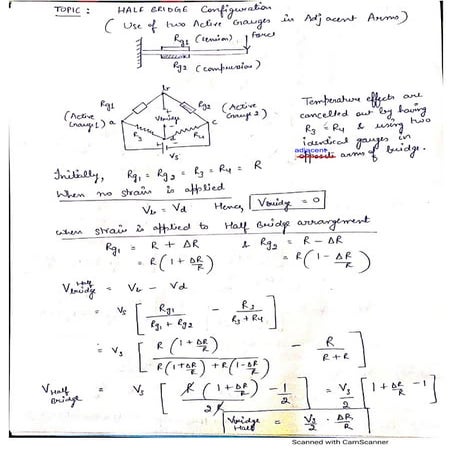 TOPIC : HALF BRIDGE Configuration
( Use of two Active Gauges in Adjacent Arms)
Rg1 (tension) Force
Rg2 (compression)
Rg1 Rg2
(Active Gauge 1) a
(Active Gauge 2) c
Vbridge
R3 R4
d
Vs
Temperature effects are
cancelled out by having
R3 = R4 & using two
identical gauges in
adjacent
opposite arms of bridge.
Initially, Rg1 = Rg2 = R3 = R4 = R
When no strain is applied
Vb = Vd Hence, Vbridge = 0
When strain is applied to Half Bridge arrangement
Rg1 = R + ΔR & Rg2 = R - ΔR
= R(1 + ΔR/R) = R(1 - ΔR/R)
VHalf bridge = Vb - Vd
= Vs [ Rg1/(Rg1 + Rg2) - R3/(R3 + R4) ]
= Vs [ R(1 + ΔR/R)/(R(1+ΔR/R) + R(1-ΔR/R)) - R/(R + R) ]
VHalf Bridge = Vs [ R(1 + ΔR/R)/2R - 1/2 ] = Vs/2 [ 1 + ΔR/R - 1 ]
Vbridge Half = Vs/2 · ΔR/R
Scanned with CamScanner